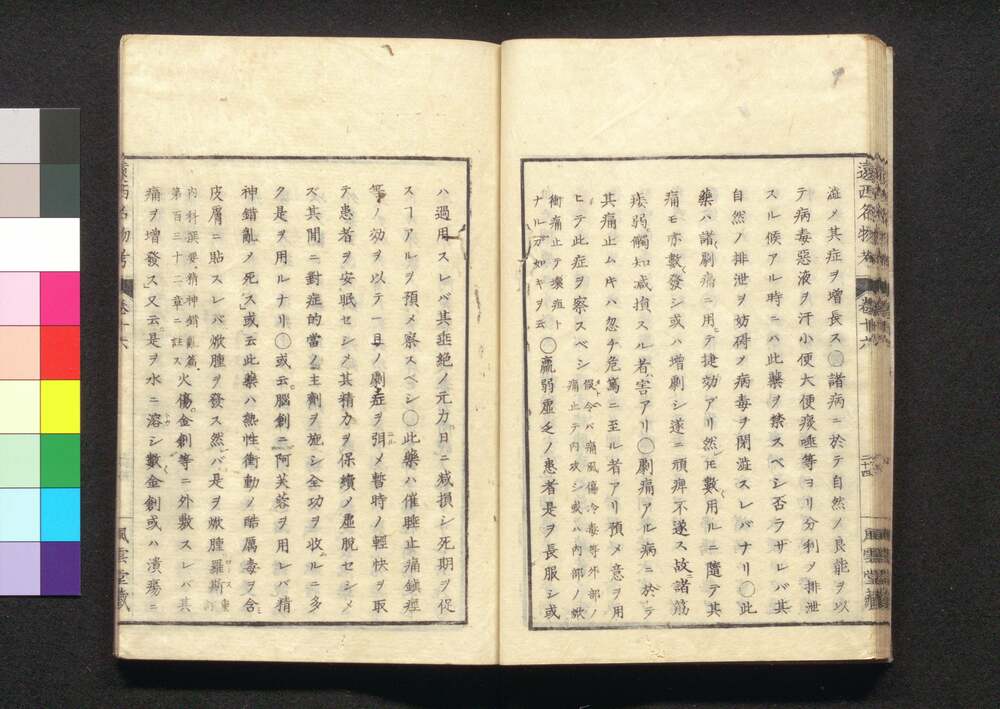 遠西名物考
卷十六
二十四
風雲堂藏
澁メ其症ヲ増長ス〇諸病ニ於テ自然ノ良能ヲ以
テ病毒惡液ヲ汗小便大便痰唾等ヨリ分利メ排泄
スル候アル時ニハ此藥ヲ禁スベシ否ラザレバ其
自然ノ排泄ヲ妨碍メ病毒ヲ閉澁スレバナリ〇此
藥ハ諸劇痛ニ用テ捷効アリ然モ數用ルニ隨テ其
痛モ亦數發シ或ハ増劇シ遂ニ頑痺不遂ス故諸筋
痿弱觸知減損スル者害アリ〇劇痛アル病ニ於テ
其痛止ムキハ忽チ危篤ニ至ル者アリ預メ意ヲ用
ヒテ此症ヲ察スベシ 假令バ痛風傷冷毒等外部ノ
痛止テ内攻シ或ハ内部ノ焮
衝痛止テ壊疽ト
ナルガ如キヲ云 〇羸弱虚乏ノ患者是ヲ長服シ或
ハ過用スレバ其垂絶ノ元力日ニ減損シ死期ヲ促
スヿアルヲ預メ察スベシ〇此藥ハ催睡止痛鎮痙
等ノ効ヲ以テ一旦ノ劇症ヲ弭メ暫時ノ輕快ヲ取
テ患者ヲ安眠セシメ其精力ヲ保續メ虚脱セシメ
ズ其間ニ對症的當ノ主劑ヲ施シ全功ヲ收ルニ多
ク是ヲ用ルナリ〇或云腦創ニ阿芙蓉ヲ用レバ精
神錯亂メ死ス」或云此藥ハ熱性衝動ノ酷厲毒ヲ含
皮膚ニ貼スレバ焮腫ヲ發ス然バ是ヲ焮腫羅斯
内科撰要精神錯亂篇
第百三十二章ニ註ス 火傷金創等ニ外敷スレバ其
痛ヲ増發ス又云是ヲ水ニ溶シ數〻金創或ハ潰瘍ニ
遠西名物考
卷十六
風雲堂藏